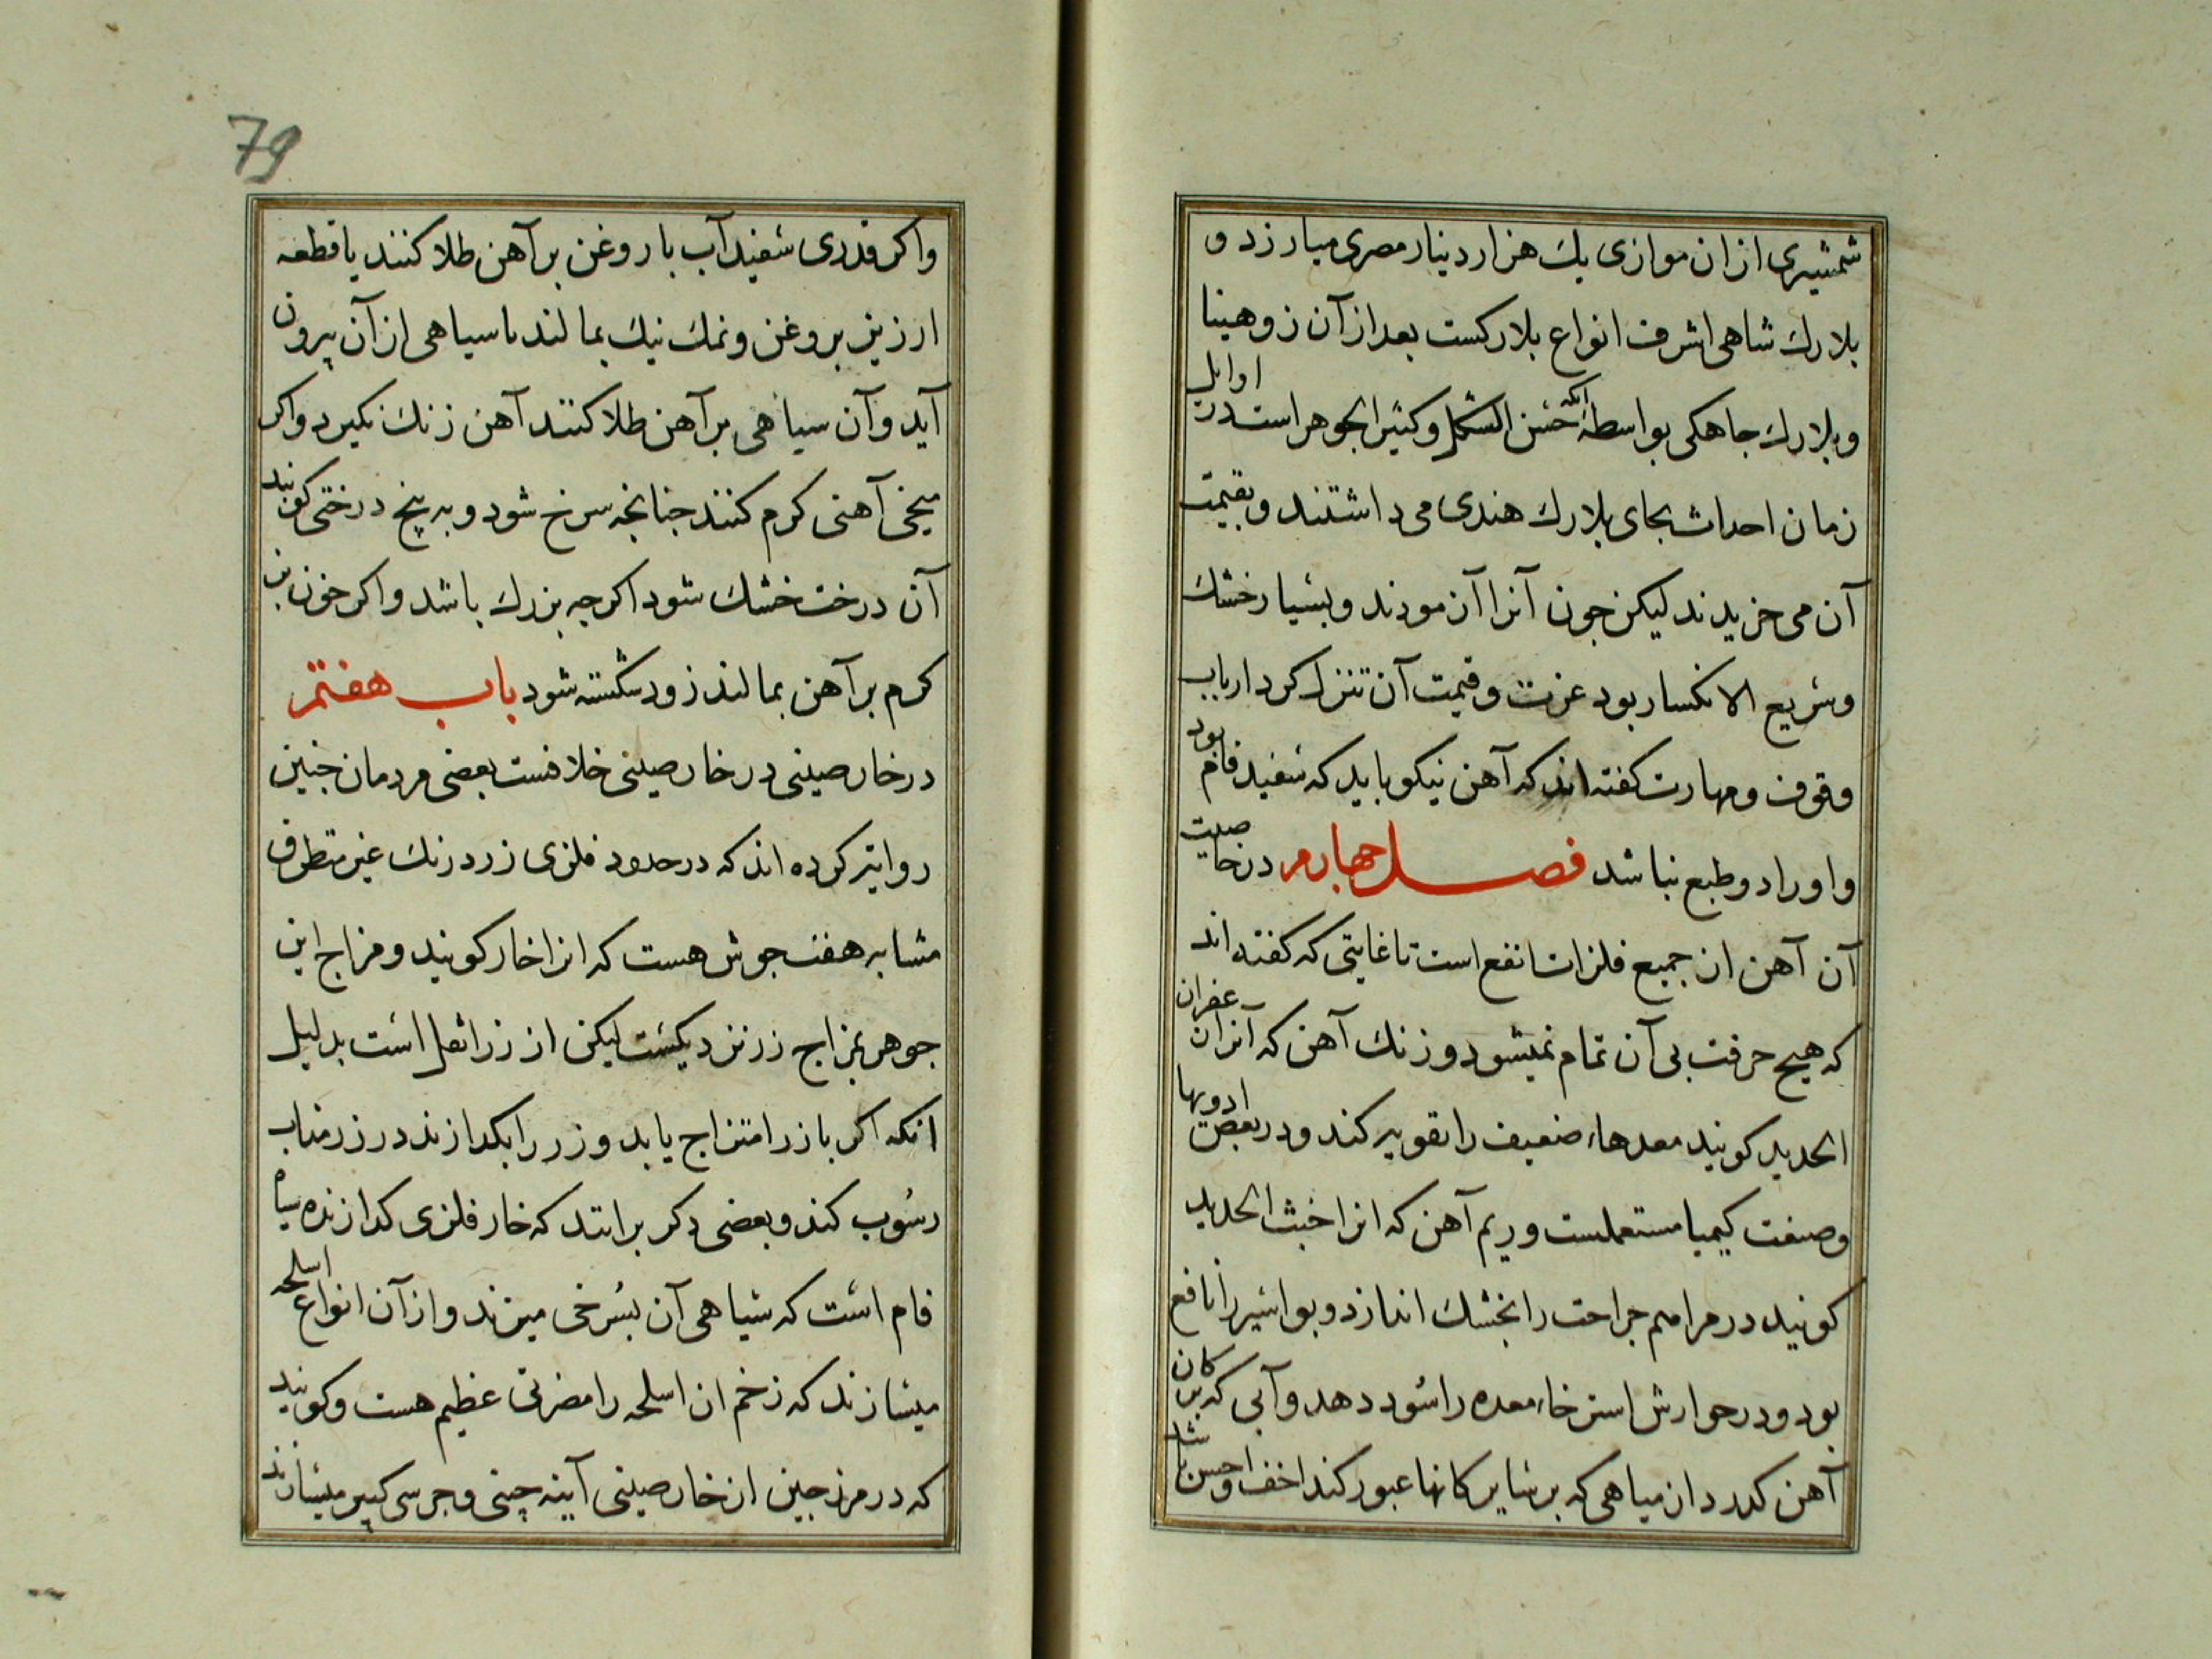 شمشیری از ان موازی یك هزار دینار مصری میارزد و
بلارك شاهی اشرف انواع بلاركست بعد از آن زوهینا
وبلارك جاهکی بواسطهٔ آنکه حسن الشکل وکثیر الجوهر است در اوایل
زمان احداث بجای بلارك هندی می داشتند وبقیمت
آن می خریدند لیکن جون آنرا آزمودند وبسیار خشك
وسریع الانکسار بود عزت وقیمت آن تنزل کرد ارباب
وقوف ومهارت کفته اند که آهن نیکو باید که سفید فام بود
واورا دو طبع نباشد فصل جهارم در خاصیت
آن آهن از جمیع فلزات انفع است تا غایتی که کفته اند
که هیج حرفت بی آن تمام نمیشود وزنك آهن که آنرا زعفران
الحدید کویند معدهاء ضعیف را تقویه کند ودر بعضی ادویها
وصنعت کیمیا مستعملست وریم آهن که انرا خبث الحدید
کویند در مراهم جراحت را بخشك اندازد وبواسیر را نافع
بود ودر جوارش استرخاء معده را سود دهد وآبی که بر کان
آهن کذرد از میاهی که بر سایر کانها عبور کند اخف واحسن باشد
79
واکر قدری سفیدآب با روغن بر آهن طلا کنند یا قطعه
ارزیز بروغن ونمك نیك بمالند تا سیاهی از آن بیرون
آید وآن سیاهی بر آهن طلا کنند آهن زنك نکیرد واکر
میخی آهنی کرم کنند جنانجه سرخ شود وبه بیخ درختی کوبند
آن درخت خشك شود اکرجه بزرك باشد واکر خون بز
کرم بر آهن بمالند زود شکسته شود باب هفتم
در خار صینی در خار صینی خلافست بعضی مردمان جنین
روایتر کرده اند که در حدود فلزی زرد رنك غیر متطرق
مشابه هفت جوش هست که انرا خار کویند ومزاج این
جوهر بمزاج زر نزدیکست لیکن از زر اثقل است بدلیل
انکه اکر با زر امتزاج یابد وزر را بکدازند در زر مذاب
رسوب کند وبعضی دکر برانند که خار فلزی کدازنده سیاه
فام است که سیاهی آن بسرخی میزند واز آن انواع اسلحه
میسازند که زخم ان اسلحه را مضرتی عظیم هست وکویند
که در مرز جین از خار صینی آینه چینی وجرسی کبیر میسازند